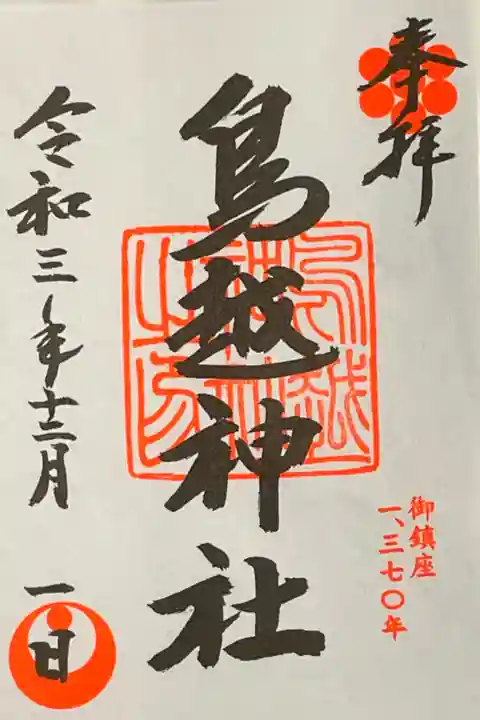 奉拝
鳥越神社
鳥越神社之印
御鎮座
一、三七〇年
令和三年十二月
一日